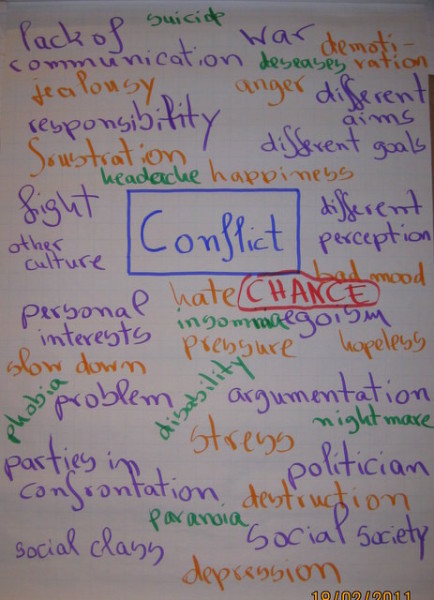 suicide
lack of
war
demoti-
communication
deseases
ration
jealousy
anger
different
aims
responsibility
different goals
frustration
headache
happiness
fight
Conflict
different
perception
other
culture
bad mood
hate
CHANCE
personal
interests
insomnia
egoism
pressure
hopeless
slow down
phobia
problem
disability
argumentation
nightmare
stress
parties in
confrontation
politician
destruction
paranoia
social class
social society
depression
18/02/2011